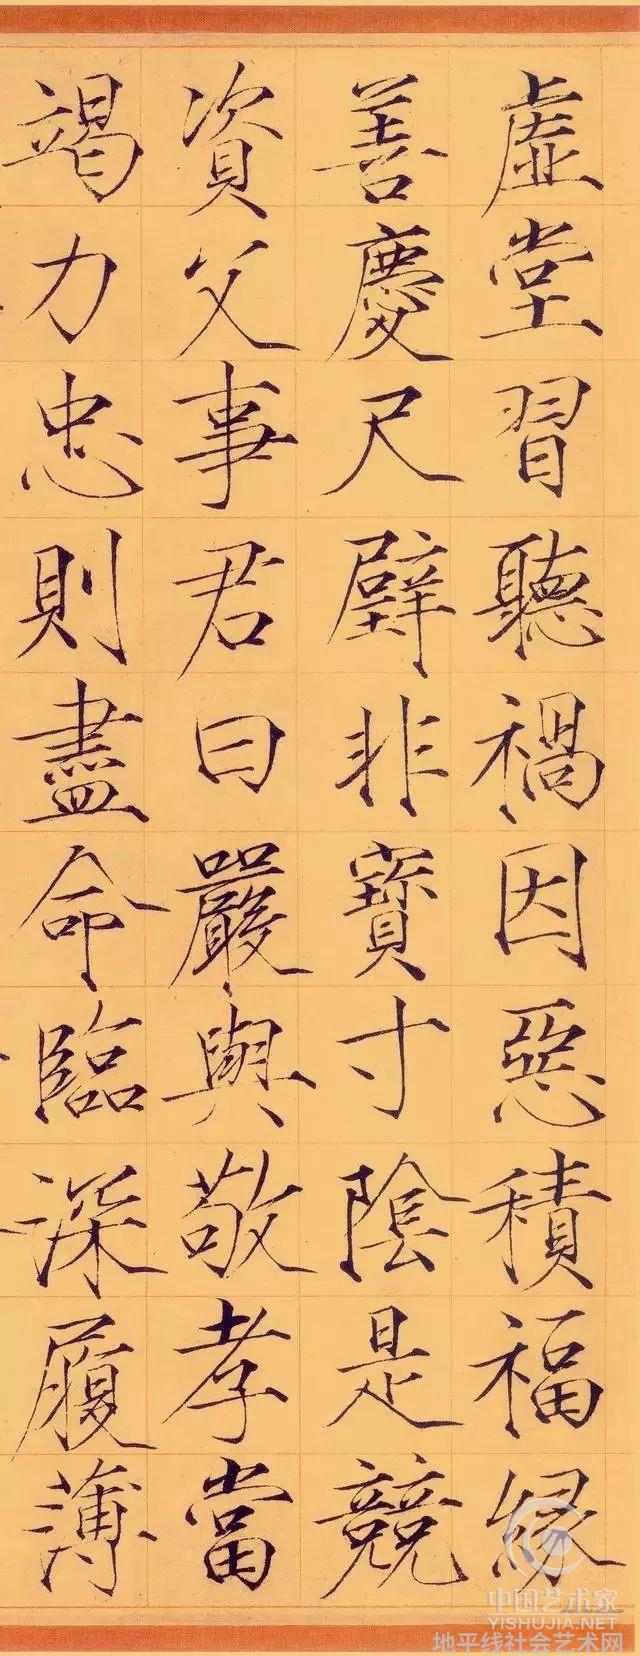 虛堂習聽禍因惡積福緣
善慶尺璧非寶寸陰是競
資父事君曰嚴與敬孝當
竭力忠則盡命臨深履薄
中国艺术家
YISHUJIA.NET
地平线社会艺术网